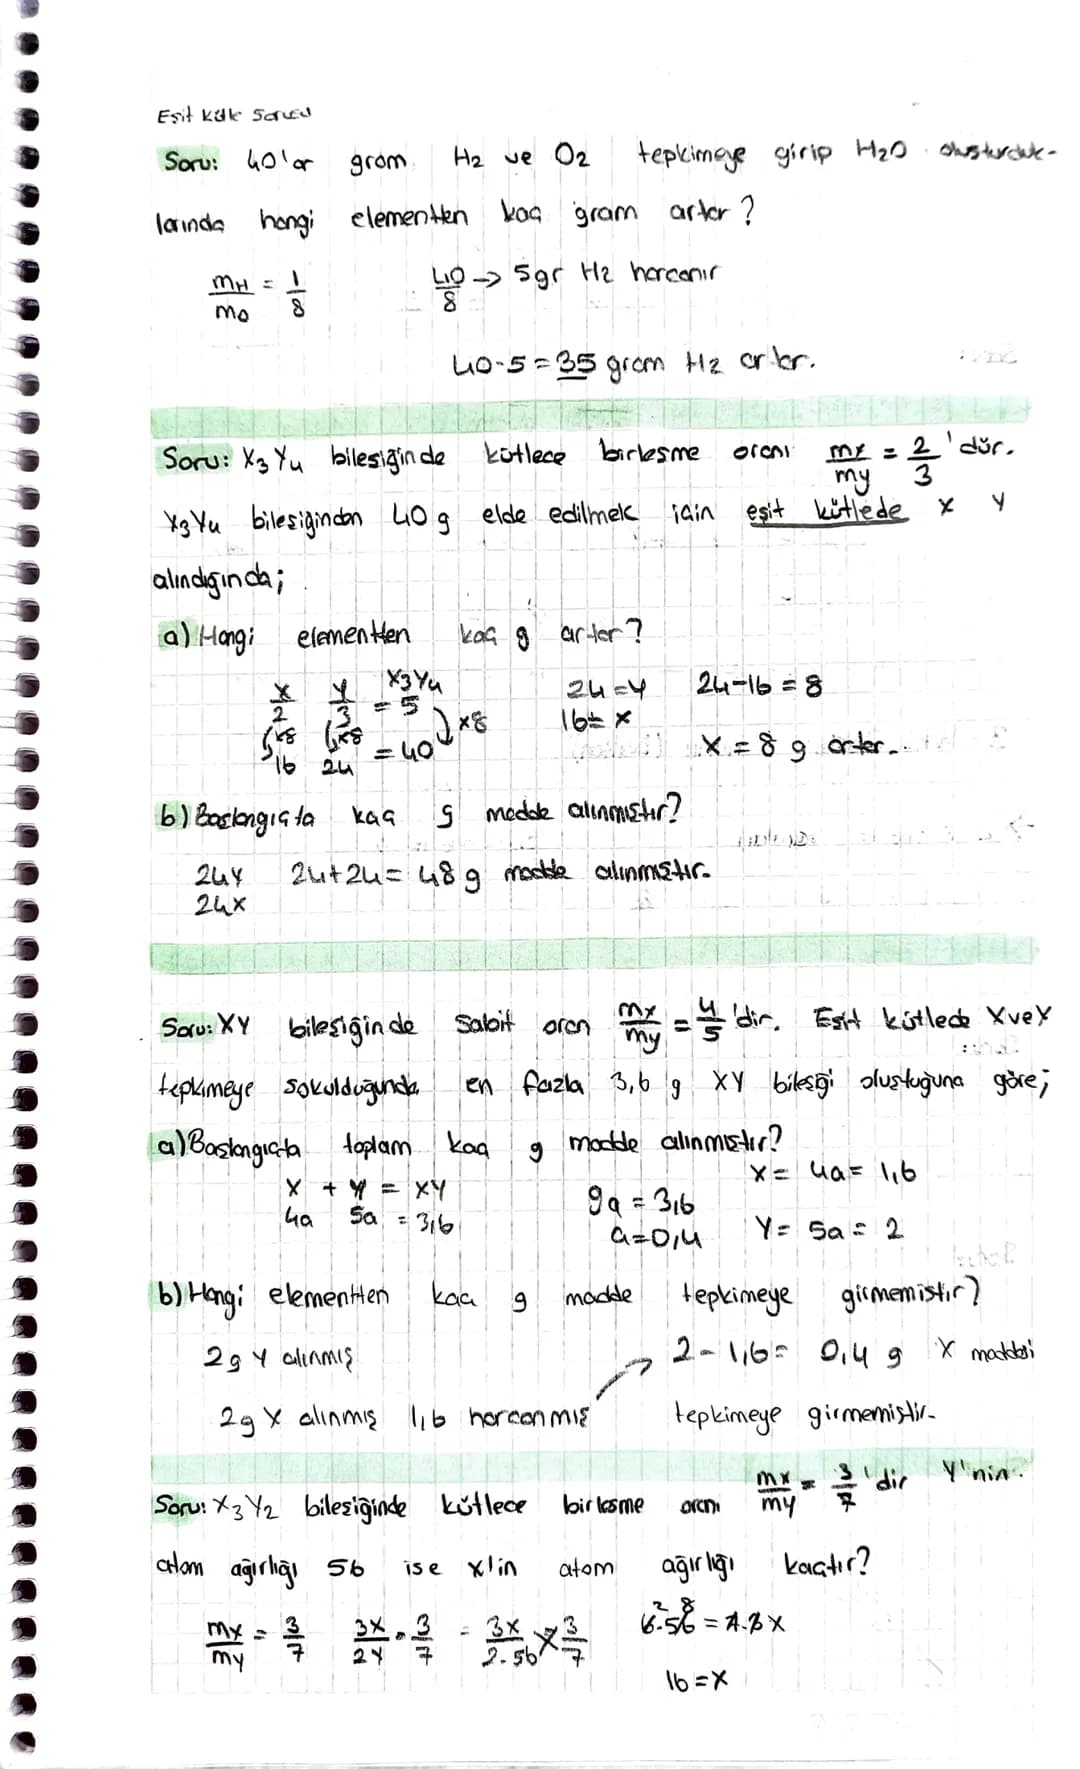 Eşit Kütle Sorusu
Soru: 40'ar gram H2 ve O2 tepkimeye girip H2O oluşturduk-
larında hangi elementten kaç gram artar?
mH/mO = 1/8 40/8 → 5gr H2 harcanır
40-5=35 gram H2 artar.
Soru: X3Y4 bileşiğinde kütlece birleşme oranı mx/my = 2/3 'dür.
X3Y4 bileşiğinden 40 g elde edilmek için eşit kütlede X Y
alındığında;
a) Hangi elementten kaç g artar?
X Y X3Y4 24=Y 24-16=8
2 3 = 5 16=X
x8 x8 x8
16 24 = 40 X = 8 g artar.
b) Başlangıçta kaç g madde alınmıştır?
24Y 24+24= 48 g madde alınmıştır.
24X
Soru: XY bileşiğinde sabit oran mx/my = 4/5 'dir. Eşit kütlede X ve Y
tepkimeye sokulduğunda en fazla 3,6 g XY bileşiği oluştuğuna göre;
a) Başlangıçta toplam kaç g madde alınmıştır?
X + Y = XY 9a = 3,6 X= 4a= 1,6
4a 5a = 3,6 a=0,4 Y= 5a= 2
b) Hangi elementten kaç g madde tepkimeye girmemiştir?
2g Y alınmış 2-1,6= 0,4 g X maddesi
2g X alınmış 1,6 harcanmış tepkimeye girmemiştir.
Soru: X3Y2 bileşiğinde kütlece birleşme oranı mx/my = 3/7 'dir Y'nin
atom ağırlığı 56 ise X'in atom ağırlığı kaçtır?
mx/my = 3/7 3X/2Y = 3/7 = 3X/2.56 X 3/7 6.56 = 7.3X
16=X